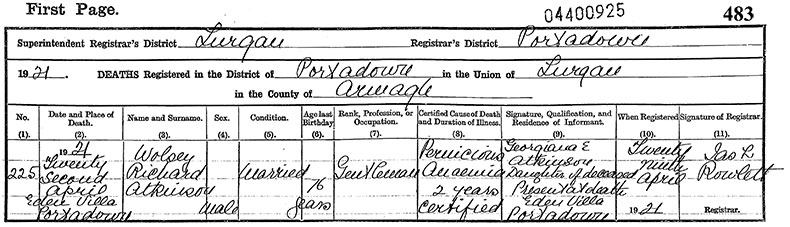 First Page. 04400925 483
Superintendent Registrar's District Lurgan Registrar's District Portadown
1921. DEATHS Registered in the District of Portadown in the Union of Lurgan
in the County of Armagh
No. Date and Place of Death. Name and Surname. Sex. Condition. Age last Birthday Rank, Profession, or Occupation. Certified Cause of Death and Duration of Illness. Signature, Qualification, and Residence of Informant. When Registered Signature of Registrar.
(1). (2). (3). (4). (5). (6). (7). (8). (9). (10). (11).
225 1921 Twenty Second April Eden Villa Portadown
Wolsey Richard Atkinson
Male
Married
76 years
Gentleman
Pernicious Anaemia 2 years Certified
Georgiana E Atkinson Daughter of deceased Present at death Eden Villa Portadown
Twenty ninth April 1921
Jas L Rowlett Registrar.